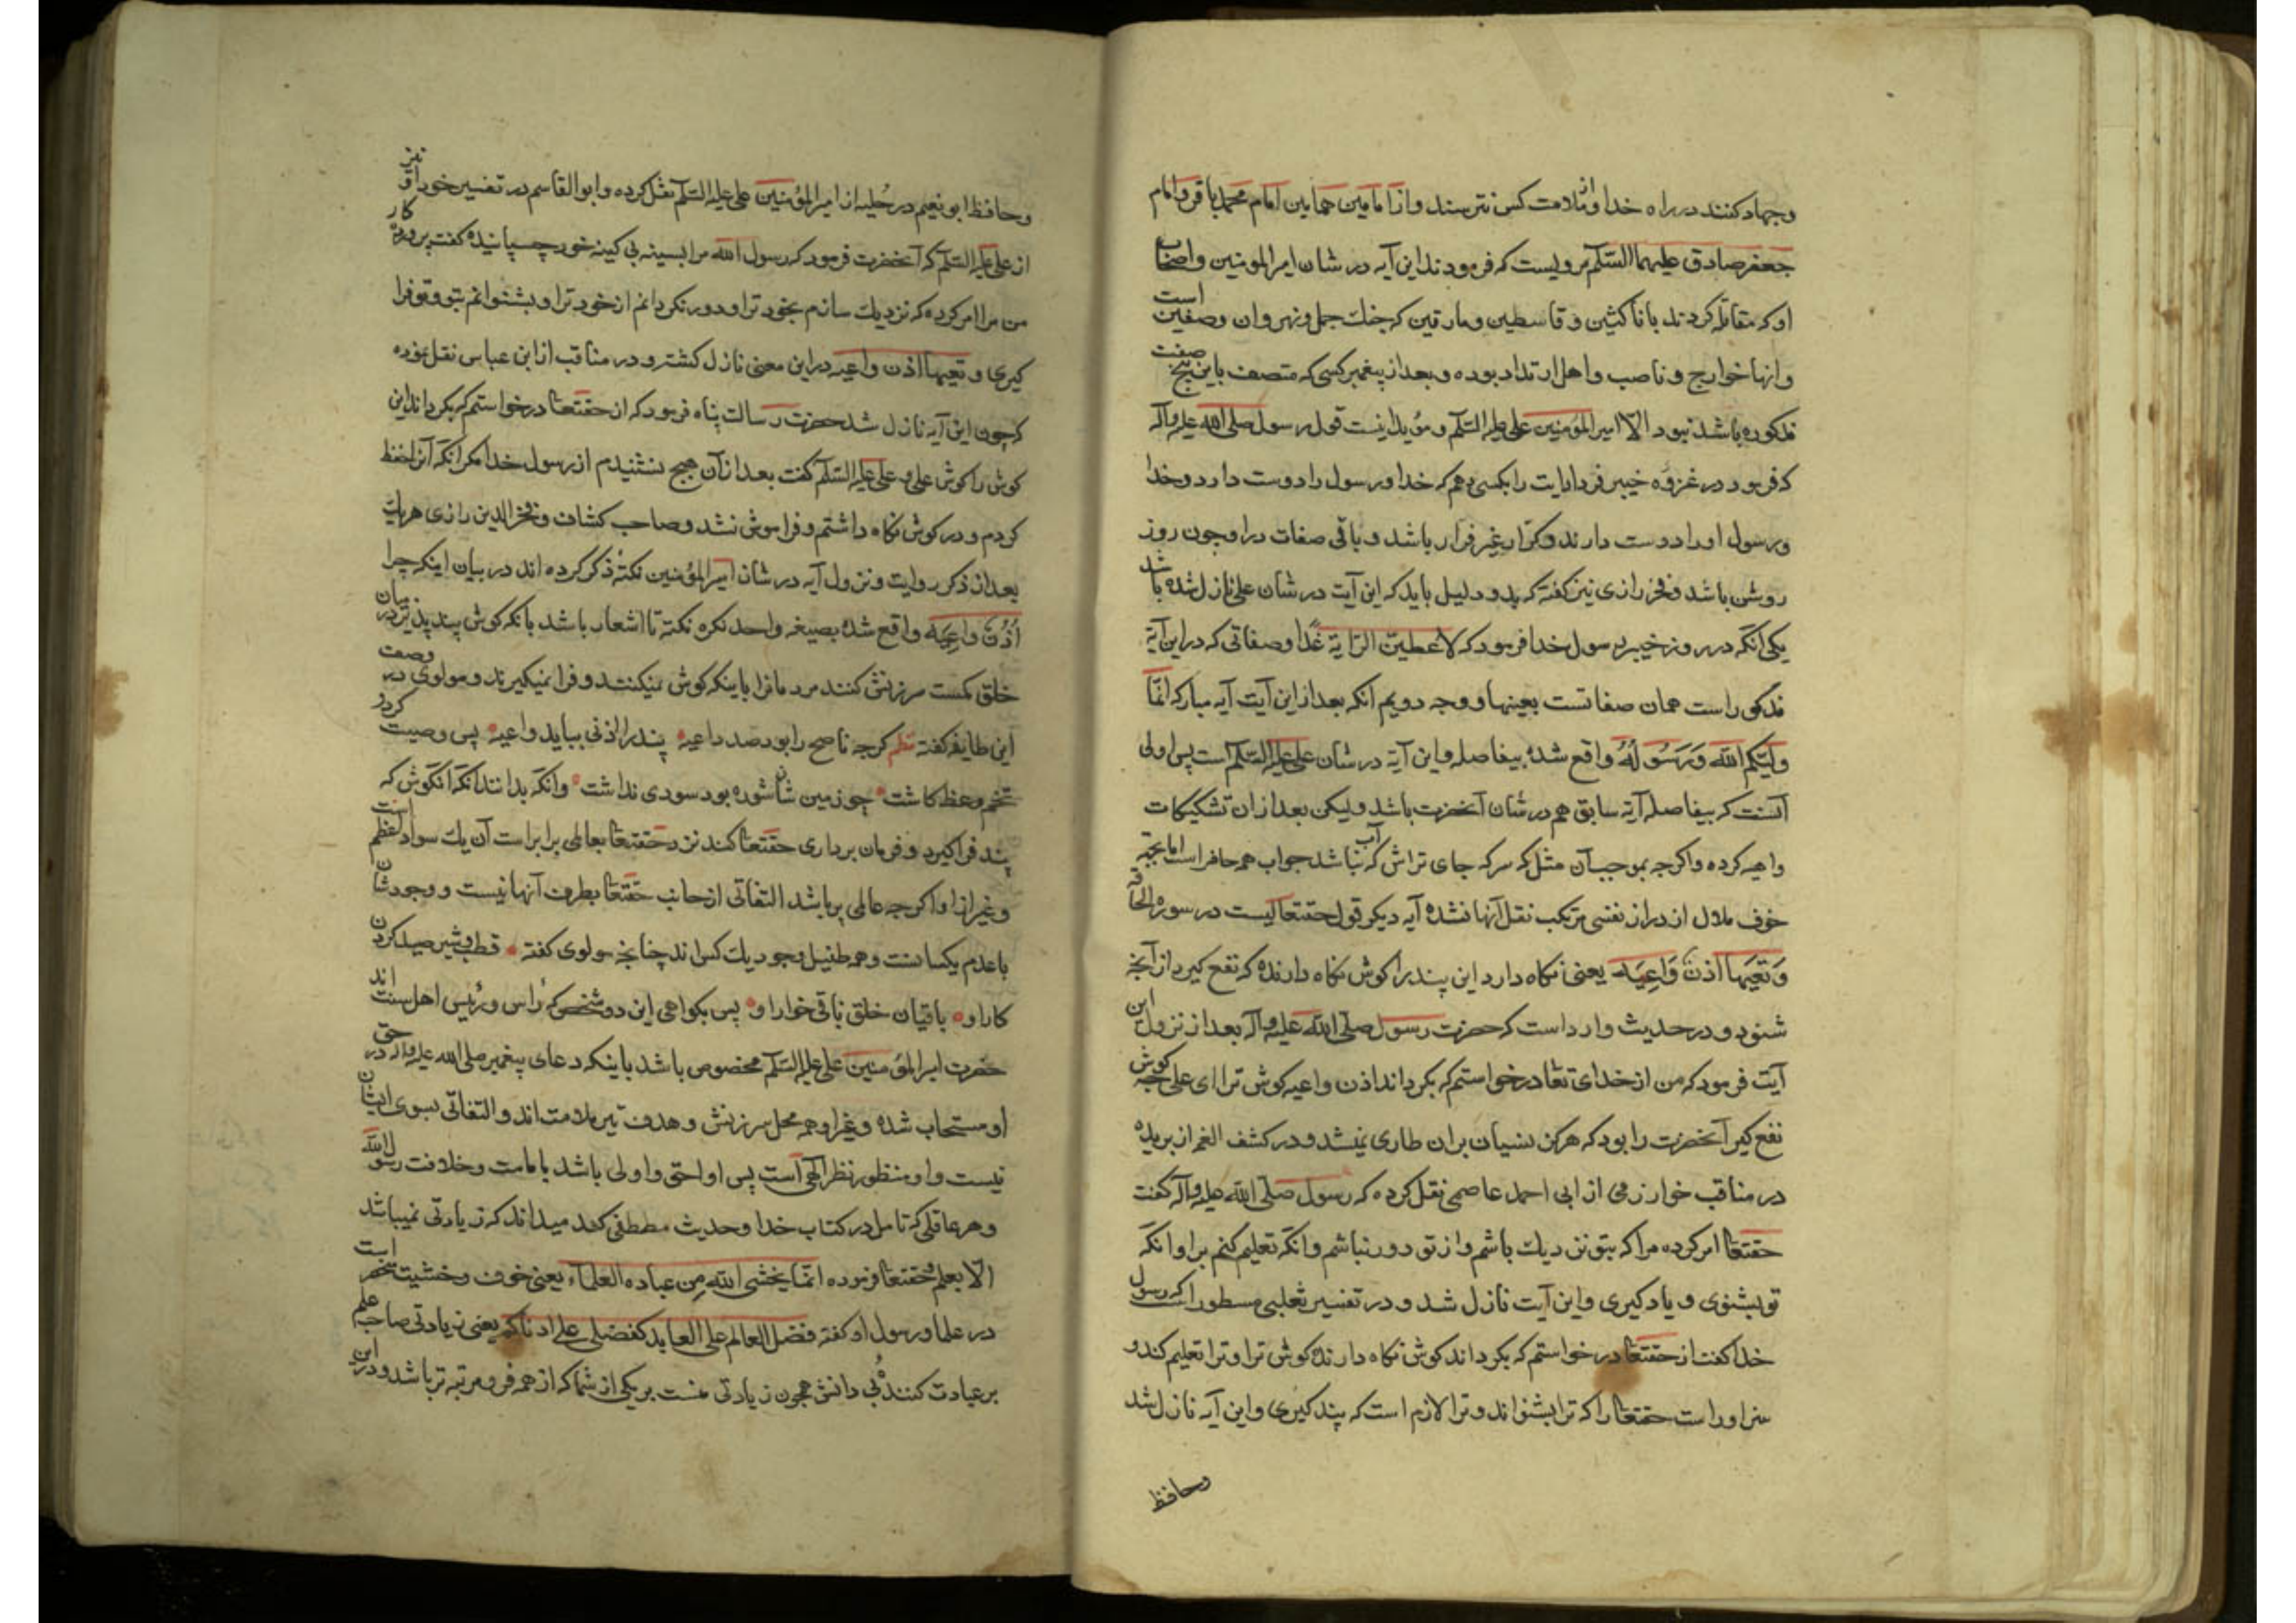 وجهاد کنند در راه خدا و از ملامت کس نترسند و از امامین همامین امام محمد باقر و امام
جعفر صادق علیهما السلم مرویست که فرمودند این آیه در شان امیر المومنین و اصحاب
او که مقاتله کردند با ناکثین و قاسطین و مارقین که جنك جمل و نهروان و صفین است
و انها خوارج و ناصب و اهل ارتداد بوده و بعد از پیغمبر کسی که متصف باین پنج صفت
مذکوره باشد نبود الا امیر المؤمنین علی علیه السلم و مؤید اینست قول رسول صلی الله علیه و آله
که فرمود در غزوه خیبر فردا رایت را بکسی دهم که خدا و رسول را دوست دارد و خدا
و رسول او را دوست دارند و کرار غیر فرار باشد و باقی صفات در او چون روز
روشن باشد و فخر رازی نیز کفته که بدو دلیل باید که این آیت در شان علی نازل شده باشد
یکی انکه در روز خیبر رسول خدا فرمود که لاعطین الرایة غدا و صفاتی که در این آیة
مذکور است همان صفاتست بعینها و وجه دویم انکه بعد از این آیت آیه مبارکه انما
ولیکم الله وَرَسُولُهُ واقع شده بیفاصله و این آیة در شان علی علیه السلم است پس اولی
آنست که بیفاصله آیة سابق هم در شان آنحضرت باشد و لیکن بعد از ان تشکیکات
واهیه کرده و اکرچه بموجب آن مثل که سرکه جای تراش که آب نباشد جواب همه حاضر است اما بجهة
خوف ملال از دراز نفسی مرتکب نقل آنها نشده آیه دیکر قول حقتعالیست در سوره الحاقه
وَتَعِیَها اُذنٌ وَاعِیَه یعنی نکاه دارد این پند را کوش نکاه دارنده که نفع کیرد از آنچه
شنود و در حدیث وارد است که حضرت رسول صلی الله علیه و اله بعد از نزول این
آیت فرمود که من از خدای تعا درخواستم که بکرداند اذن واعیه کوش ترا ای علی چه کوش
نفع کیر آنحضرت را بود که هرکز نسیان بران طاری نمیشد و در کشف الغمه از بریده
در مناقب خوارزمی از ابی احمد عاصمی نقل کرده که رسول صلی الله علیه و آله کفت
حقتعا امر کرده مرا که بتو نزدیك باشم و از تو دور نباشم و انکه تعلیم کنم برا و انکه
تو بشنوی و یاد کیری و این آیت نازل شد و در تفسیر ثعلبی مسطور است که رسول
خدا کفت از حقتعا درخواستم که بکرداند کوش نکاه دارنده کوش ترا و ترا تعلیم کند و
سزاوار است حقتعا را که ترا بشنواند و ترا لازم است که پند کیری و این آیه نازل شد
وحافظ
وحافظ ابو نعیم در حُلیه از امیر المؤمنین علی علیه السلم نقل کرده و ابو القاسم در تفسیر خود او نیز
از علی علیه السلم که آنحضرت فرمود که رسول الله مرا بسینه بی کینه خود چسپانیده کفت پروردکار
من مرا امر کرده که نزدیك سازم بخود ترا و دور نکردانم از خود ترا و بشنوانم بتو و تو فرا
کیری و تعیها اذن واعیه در این معنی نازل کشته و در مناقب از ابن عباس نقل نموده
که چون این آیه نازل شد حضرت رسالت پناه فرمود که از حقتعا درخواستم که بکرداند این
کوش را کوش علی و علی علیه السلم کفت بعد از آن هیچ نشنیدم از رسول خدا مکر انکه آنرا حفظ
کردم و در کوش نکاه داشتم و فراموش نشد و صاحب کشاف و فخر الدین رازی هریك
بعد از ذکر روایت و نزول آیه در شان امیر المؤمنین نکته ذکر کرده اند در بیان اینکه چرا
اُذُنٌ واعِیَه واقع شده بصیغه واحد نکره نکته تا اشعار باشد بانکه کوش پند پذیر در میان
خلق کمست سرزنش کنند مردمانرا باینکه کوش نمیکنند و فرا نمیکیرند و مولوی در وصف
این طایفه کفته نظم کرچه ناصح را بود صد داعیه پند را اذنی بباید واعیه پس وصیت کرد و
تخم وعظ کاشت چو زمین شان شوره بود سودی نداشت و انکه بدانند انکه آنکوش که
پند فرا کیرد و فرمان برداری حقتعا کند نزد حقتعا بعالمی برابر است آن یك سواد اعظم است
و غیر از او اکرچه عالمی پر باشد التفاتی از جانب حقتعا بطرف آنها نیست و وجودشان
با عدم یکسانست و همه طفیل وجود یك کس اند چنانچه مولوی کفته قطب شیر و صید کردن
کار او باقیان خلق باقی خوار او پس بکواهی این دو شخص که رأس و رئیس اهل سنت اند
حضرت امیر المؤمنین علی علیه السلم مخصوص باشد باینکه دعای پیغمبر صلی الله علیه و اله در حق
او مستجاب شده و غیر او همه محل سرزنش و هدف تیر ملامت اند و التفاتی بسوی ایشان
نیست و او منظور نظر الهی است پس او احق و اولی باشد بامامت و خلافت رسول الله
و هر عاقلی که تامل در کتاب خدا و حدیث مصطفی کند میداند که زیادتی نمیباشد
الا بعلم و حقتعا فرموده انما یخشی الله مِن عباده العلماء یعنی خوف و خشیت منحصر است
در علما و رسول او کفته فضل العالم علی العابد کفضلی علی ادناکم یعنی زیادتی صاحب علم
بر عبادت کننده بی دانش همچون زیادتی منست بر یکی از شما که از همه فرومرتبه تر باشد و در این